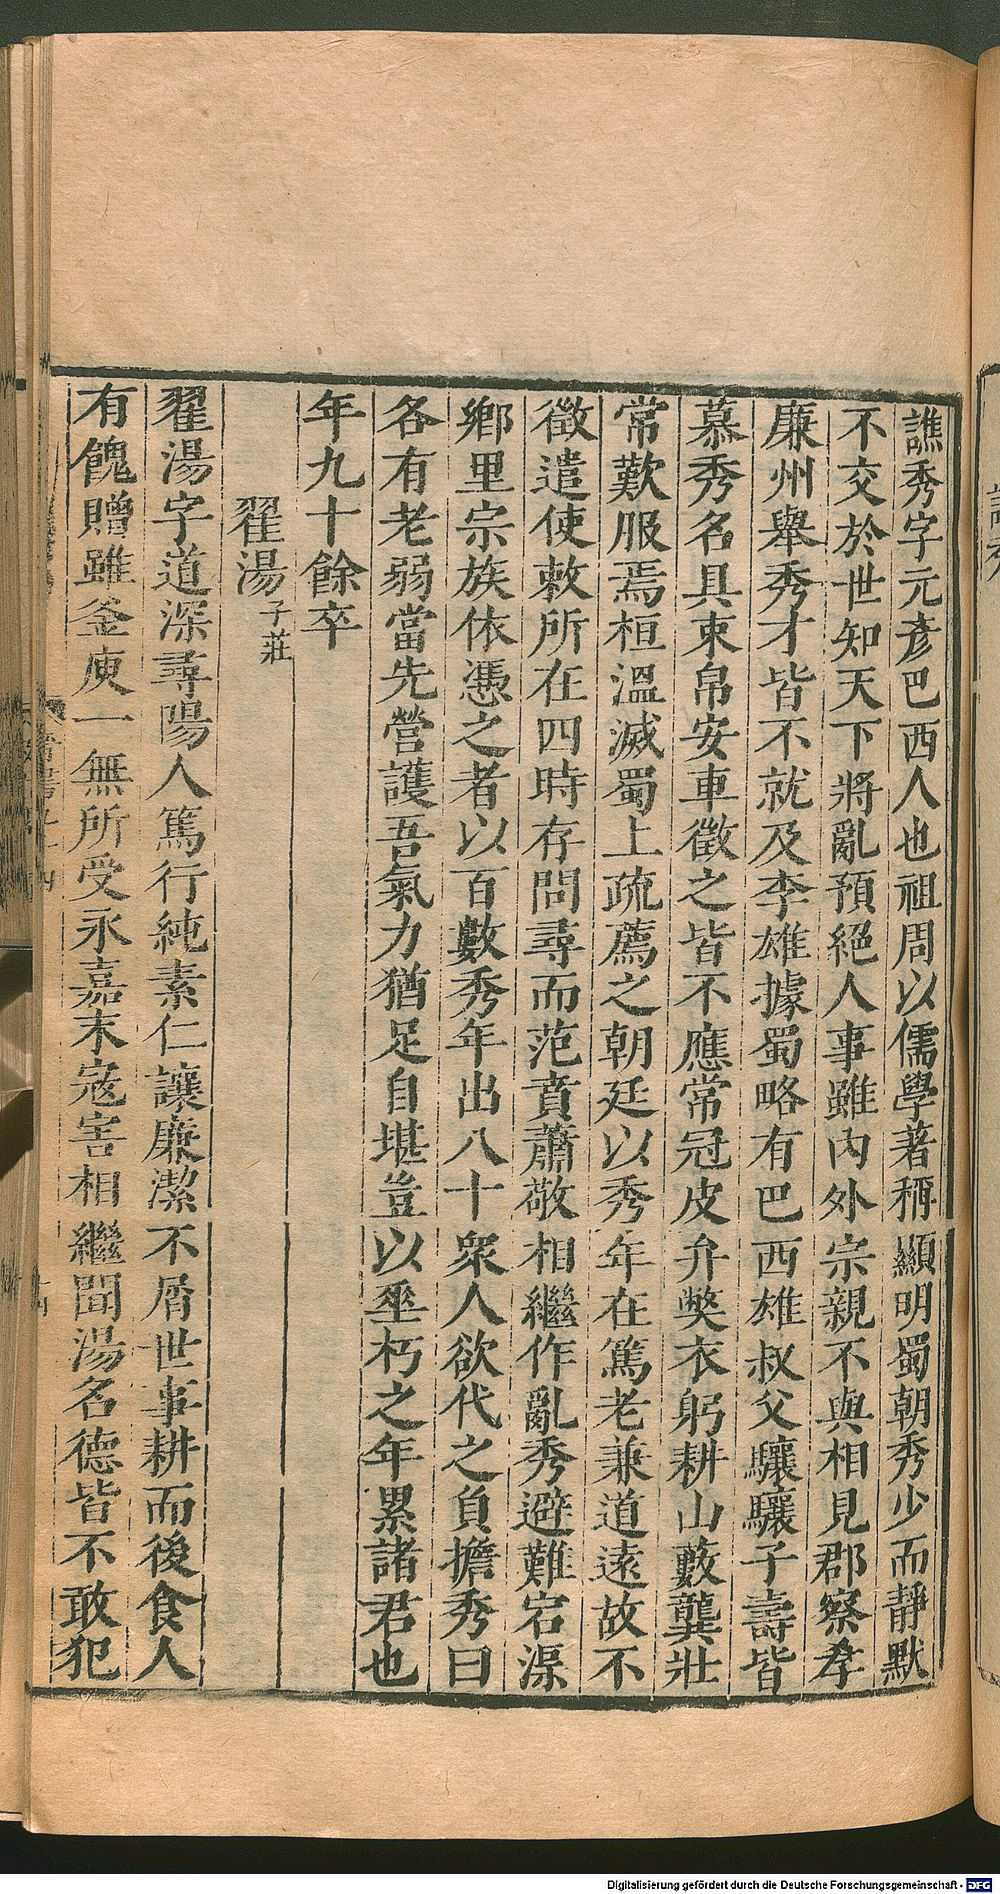 譙秀字元彥巴西人也祖周以儒學著稱顯明蜀朝秀少而靜默
不交於世知天下將亂預絕人事雖內外宗親不與相見郡察孝
廉州舉秀才皆不就及李雄據蜀略有巴西雄叔父驤驤子壽皆
慕秀名具束帛安車徵之皆不應常冠皮弁獘衣躬耕山藪龔壯
常歎服焉桓溫滅蜀上疏薦之朝廷以秀年在篤老兼道遠故不
徵遣使敕所在四時存問尋而范賁蕭敬相繼作亂秀避難宕渠
鄉里宗族依憑之者以百數秀年出八十衆人欲代之負擔秀曰
各有老弱當先營護吾氣力猶足自堪豈以垂朽之年累諸君也
年九十餘卒
翟湯子莊
翟湯字道深尋陽人篤行純素仁讓廉潔不屑世事耕而後食人
有餽贈雖釜庾一無所受永嘉末寇害相繼聞湯名德皆不敢犯
Digitalisierung gefördert durch die Deutsche Forschungsgemeinschaft - DFG